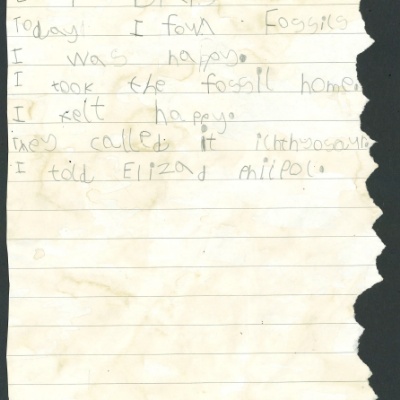 Today I foun Fossils
I was happy.
I took the fossil home.
I felt happy.
They called it ichthyosaur.
I told Elizad Philpot.